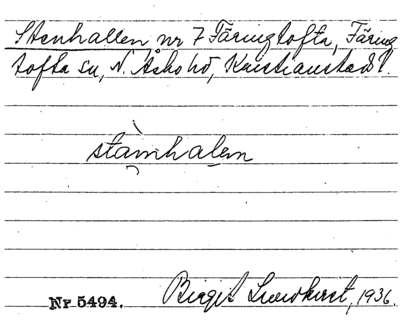 Stenhallen nr 7 Färingtofta, Färing
tofta sn, N. Åsbo hd, Kristianstads l.
stàmhalem
Nr 5494. Birgit Lundkvist, 1936.